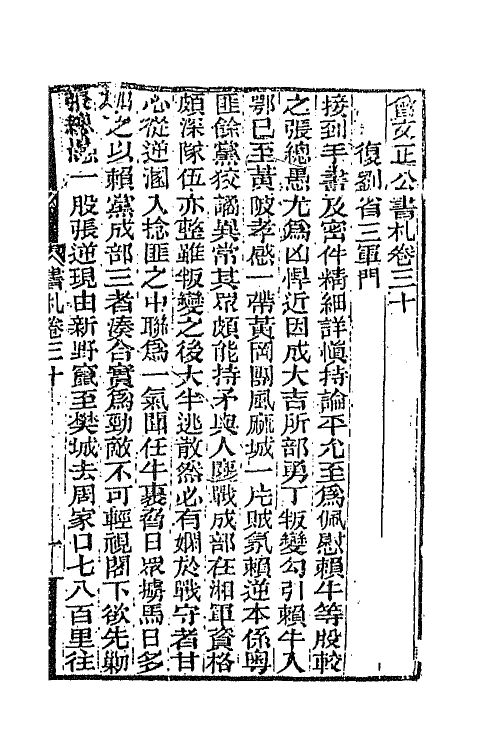 曾文正公書札卷三十
復劉省三軍門
接到手書及密件精細詳慎持論平允至爲佩慰賴牛等股較
之張總愚尤爲凶悍近因成大吉所部勇丁叛變勾引賴牛入
鄂已至黃陂孝感一帶黃岡團風麻城一片賊氛賴逆本係粵
匪餘黨狡譎異常其眾頗能持矛與人鏖戰成部在湘軍資格
頗深隊伍亦整雖叛變之後大半逃散然必有嫺於戰守者甘
心從逆溷入捻匪之中聯爲一氣聞任牛裹脅日眾擄馬日多
加之以賴黨成部三者湊合實爲勁敵不可輕視閣下欲先勦
張總愚一股張逆現由新野竄至樊城去周家口七八百里往
書札卷三十
一